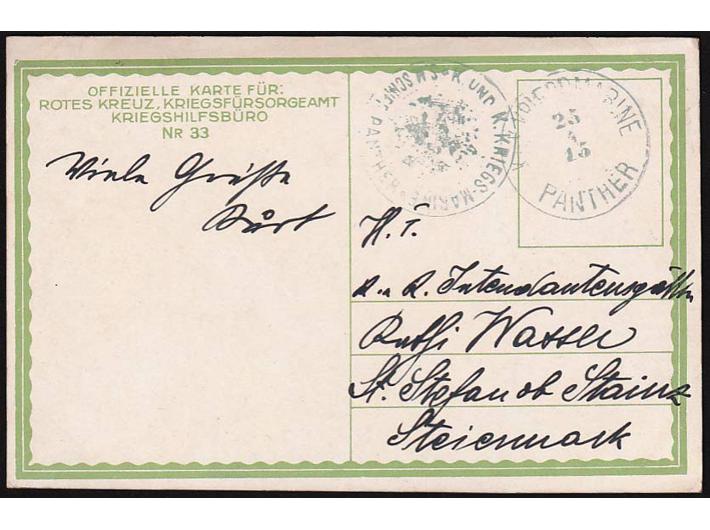 OFFIZIELLE KARTE FÜR:
ROTES KREUZ, KRIEGSFÜRSORGEAMT
KRIEGSHILFSBÜRO
NR 33
Viele Grüße
Kurt
K. UND K. KRIEGS-MARINE
PANTHER
K.u.K. KRIEGSMARINE
25
15
PANTHER
H. T.
k. u. k. Intendantensgattin
Ruthi Wasser
St. Stefan ob Stainz
Steiermark